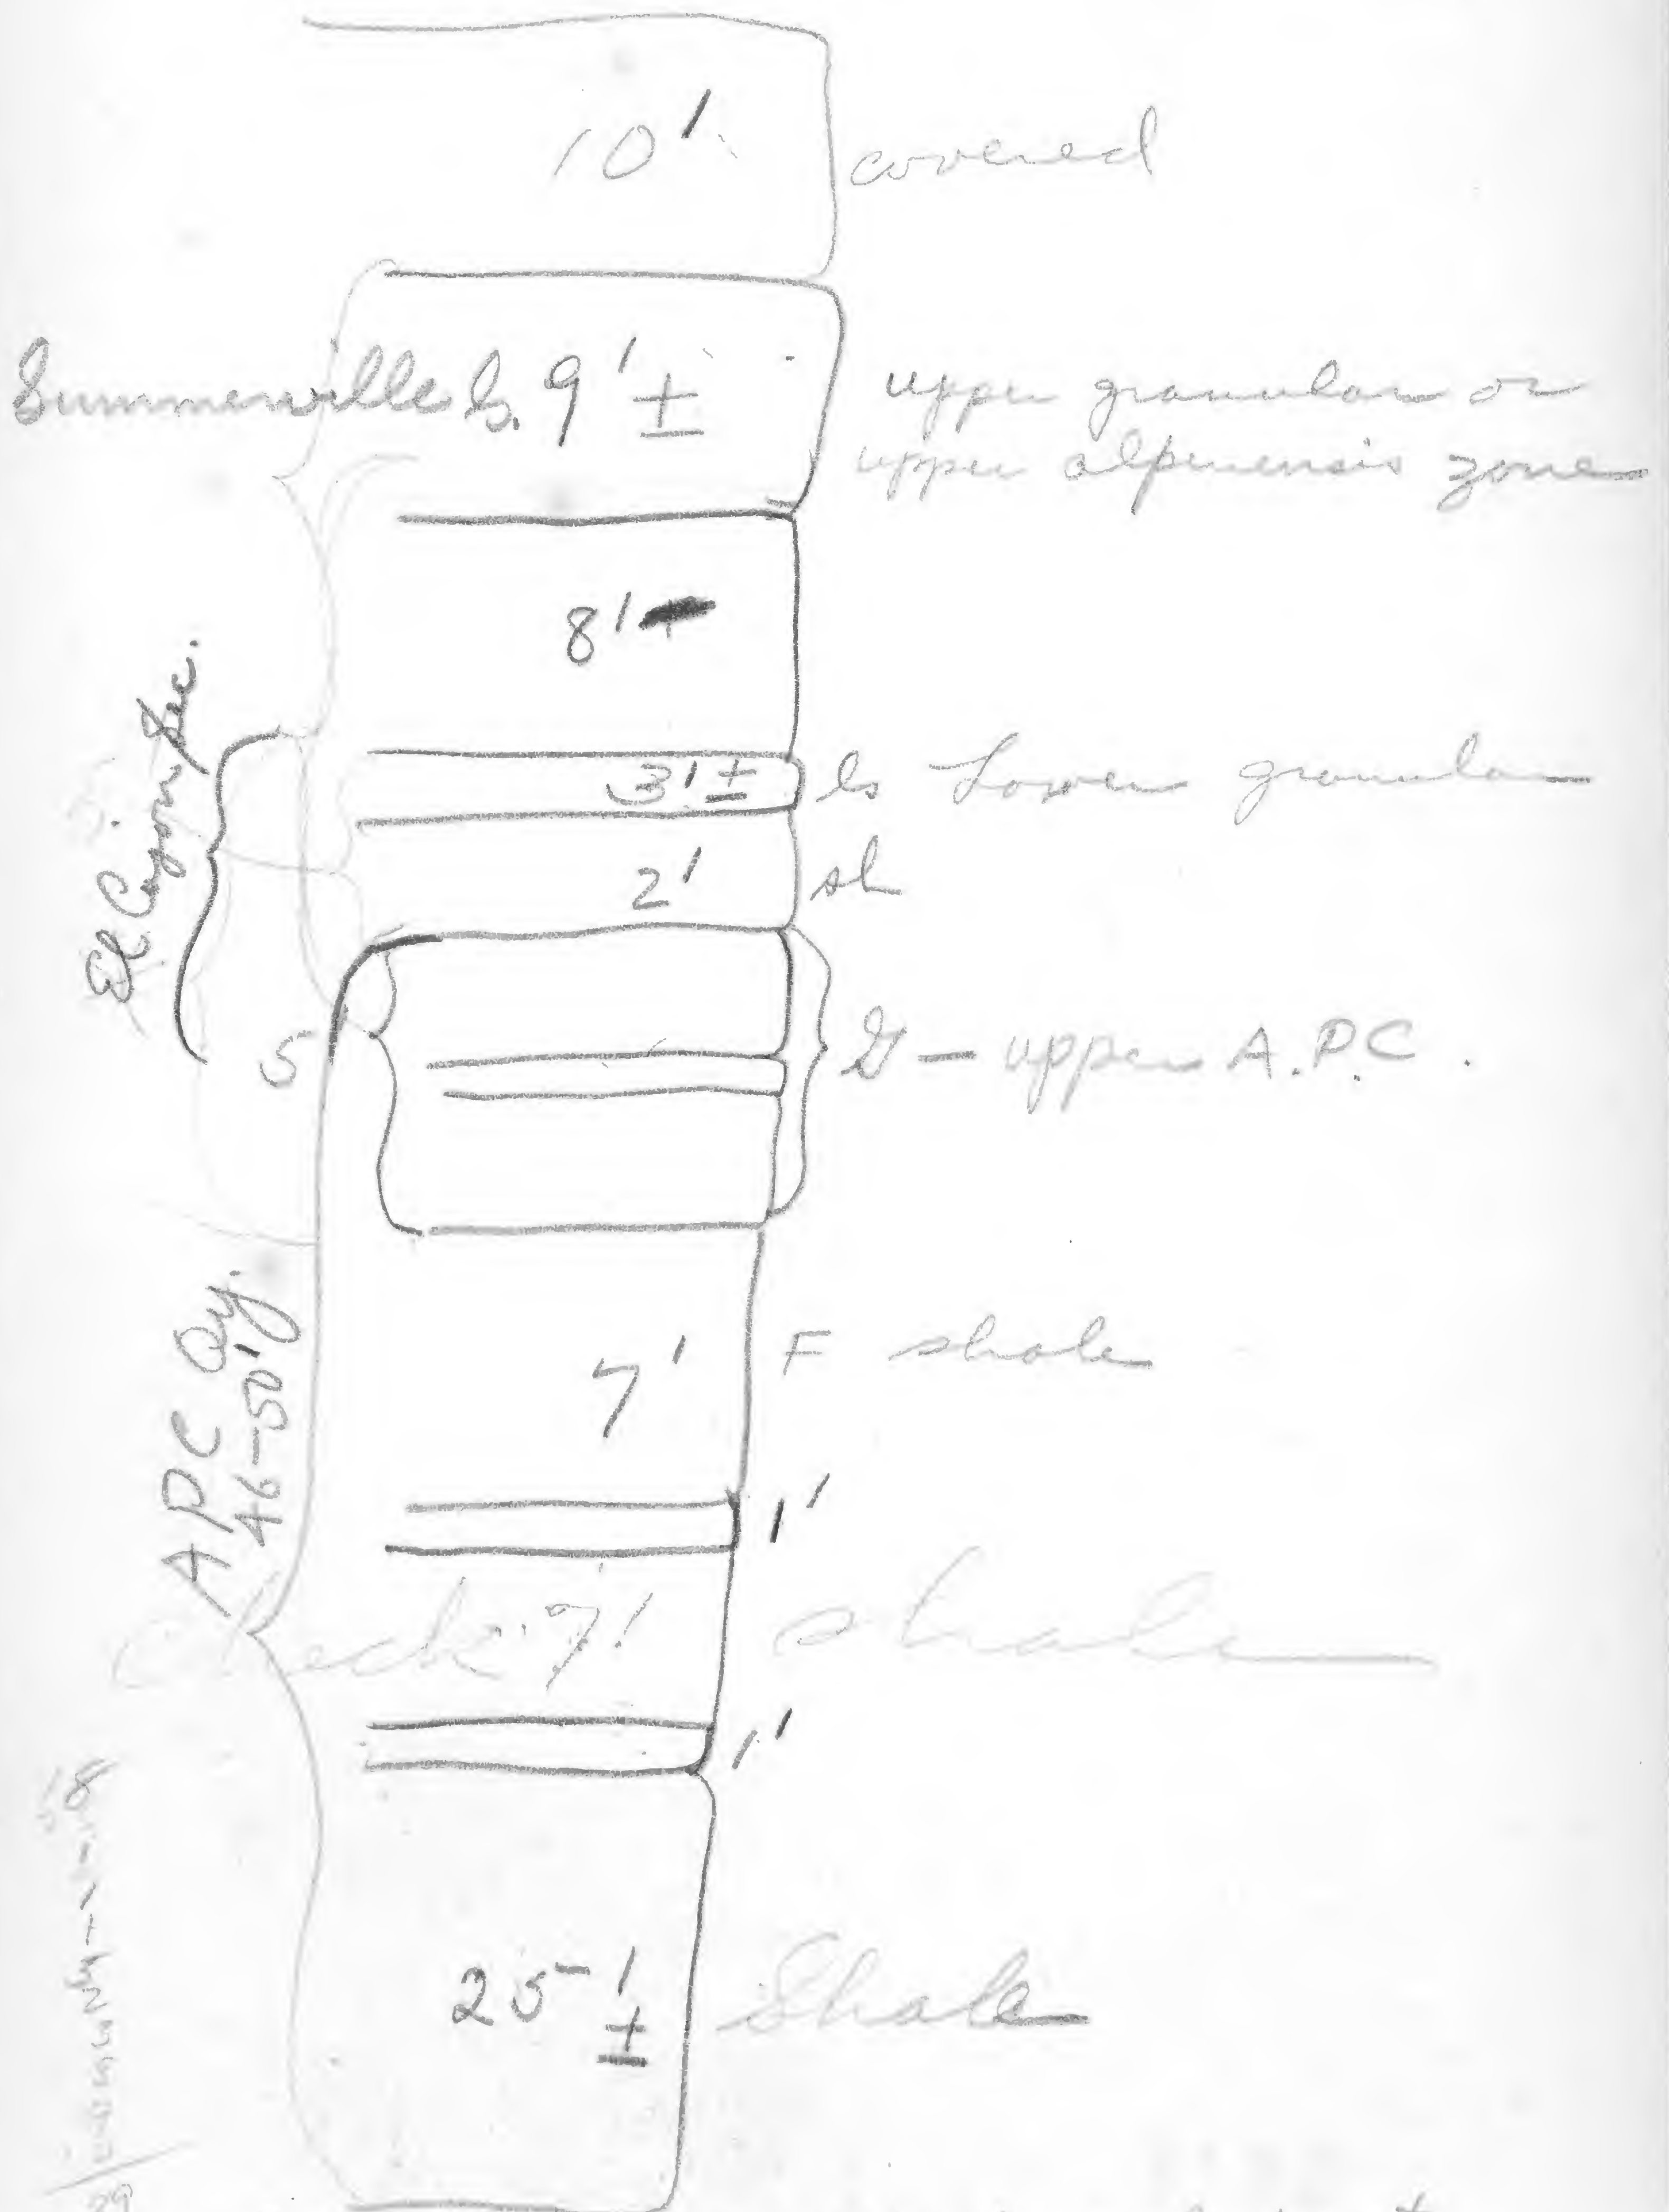 10' covered
Summerville ls. 9' ± upper granular or
upper alpenensis zone
8'
El Cajon Sec.
3' ± ls Lower granular
2' sh
5
G — upper A.P.C.
7' F shale
A P C Qy.
46-50'
1'
Check 7' shale
1'
25' ± Shale